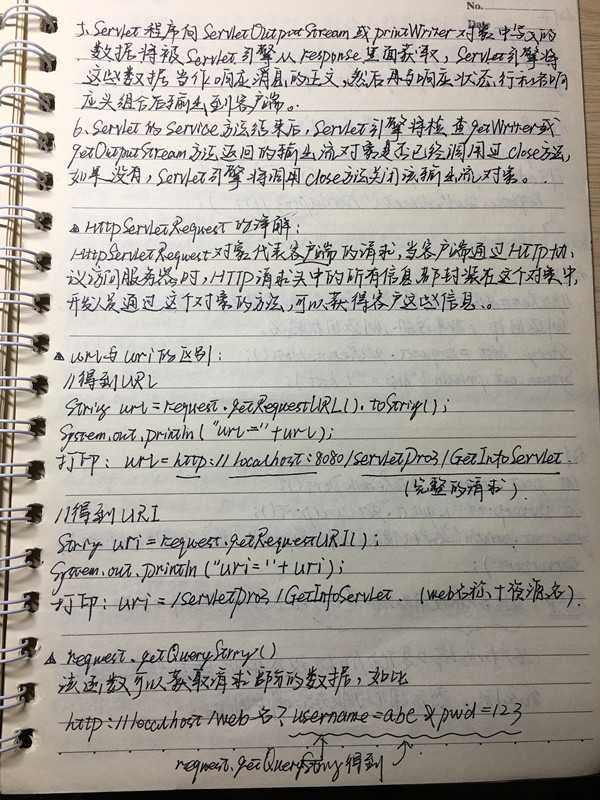 No.
Date
5、Servlet程序向ServletOutputStream或printWriter对象中写入的
数据将被Servlet引擎从response里面获取，Servlet引擎将
这些数据当作响应消息的正文，然后再与响应状态行和各响
应头组合后输出到客户端。
6、Servlet的Service方法结束后，Servlet引擎将检查getWriter或
getOutputStream方法返回的输出流对象是否已经调用过close方法，
如果没有，Servlet引擎将调用close方法关闭该输出流对象。
▲ HttpServletRequest的详解：
HttpServletRequest对象代表客户端的请求，当客户端通过HTTP协
议访问服务器时，HTTP请求头中的所有信息都封装在这个对象中，
开发人员通过这个对象的方法，可以获得客户这些信息。
▲ url与uri的区别：
//得到URL
String url=request.getRequestURL().toString();
System.out.println("url="+url);
打印：url=http://localhost:8080/servletPro3/GetInfoServlet
(完整的请求)
//得到URI
String uri=request.getRequestURI();
System.out.println("uri="+uri);
打印：uri=/servletPro3/GetInfoServlet (web名称+资源名)
▲ request.getQueryString()
该函数可以获取请求部分的数据，如比
http://localhost/web名?username=abc&pwd=123
request.getQueryString得到